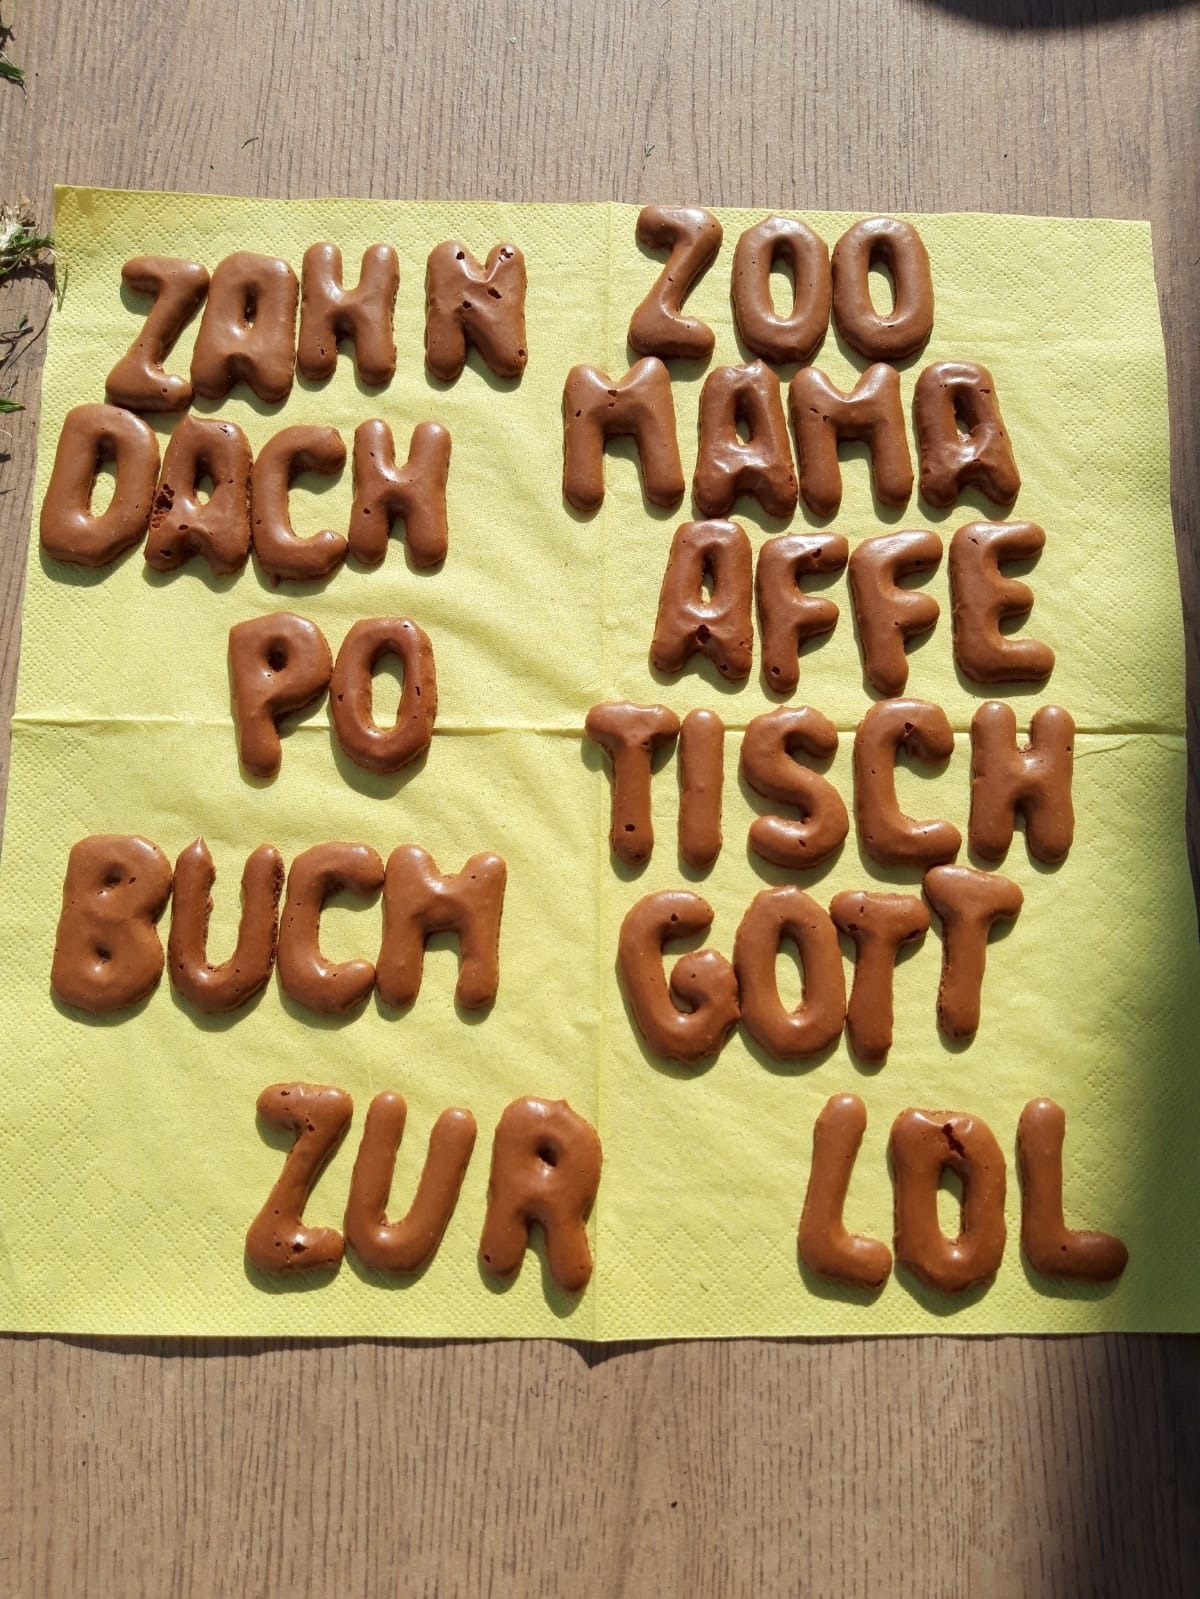 ZAHN
DACH
PO
BUCM
ZUR
ZOO
MAMA
AFFE
TISCH
GOTT
LOL